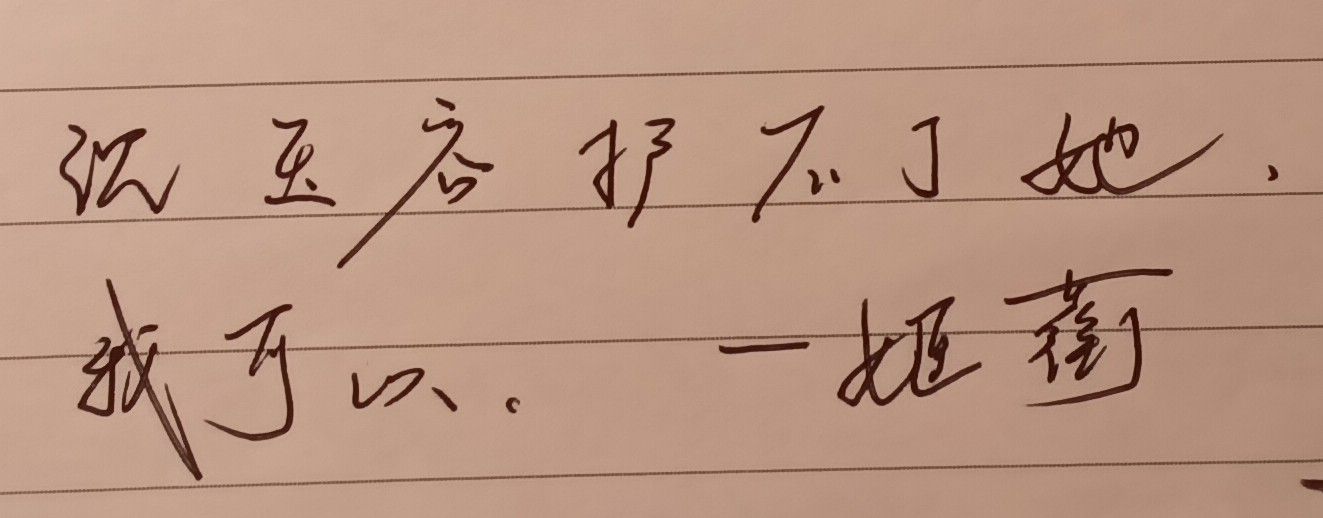 沈玉容护不了她,
我可以。 —姬蘅